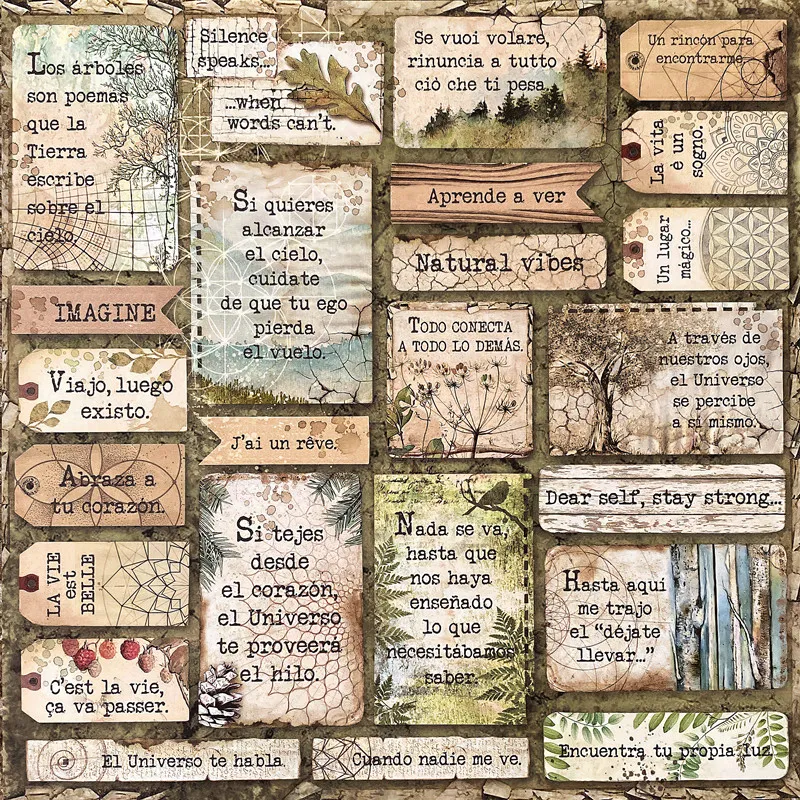 Los árboles
son poemas
que la
Tierra
escribe
sobre el
cielo.
Silence
speaks...
...when
words can't.
Se vuoi volare,
rinuncia a tutto
ciò che ti pesa.
Un rincón para
encontrarme.
La vita
è un
sogno.
Si quieres
alcanzar
el cielo,
cuidate
de que tu ego
pierda
el vuelo.
Aprende a ver
Natural vibes
Un lugar
mágico...
IMAGINE
TODO CONECTA
A TODO LO DEMÁS.
A través de
nuestros ojos,
el Universo
se percibe
a si mismo.
Viajo, luego
existo.
J'ai un rêve.
Abraza a
tu corazón.
Si tejes
desde
el corazón,
el Universo
te proveerá
el hilo.
Nada se va,
hasta que
nos haya
enseñado
lo que
necesitábamos
saber.
Dear self, stay strong...
LA VIE
est
BELLE
Hasta aquí
me trajo
el “déjate
llevar...”
C'est la vie,
ça va passer.
El Universo te habla.
Cuando nadie me ve.
Encuentra tu propia luz.